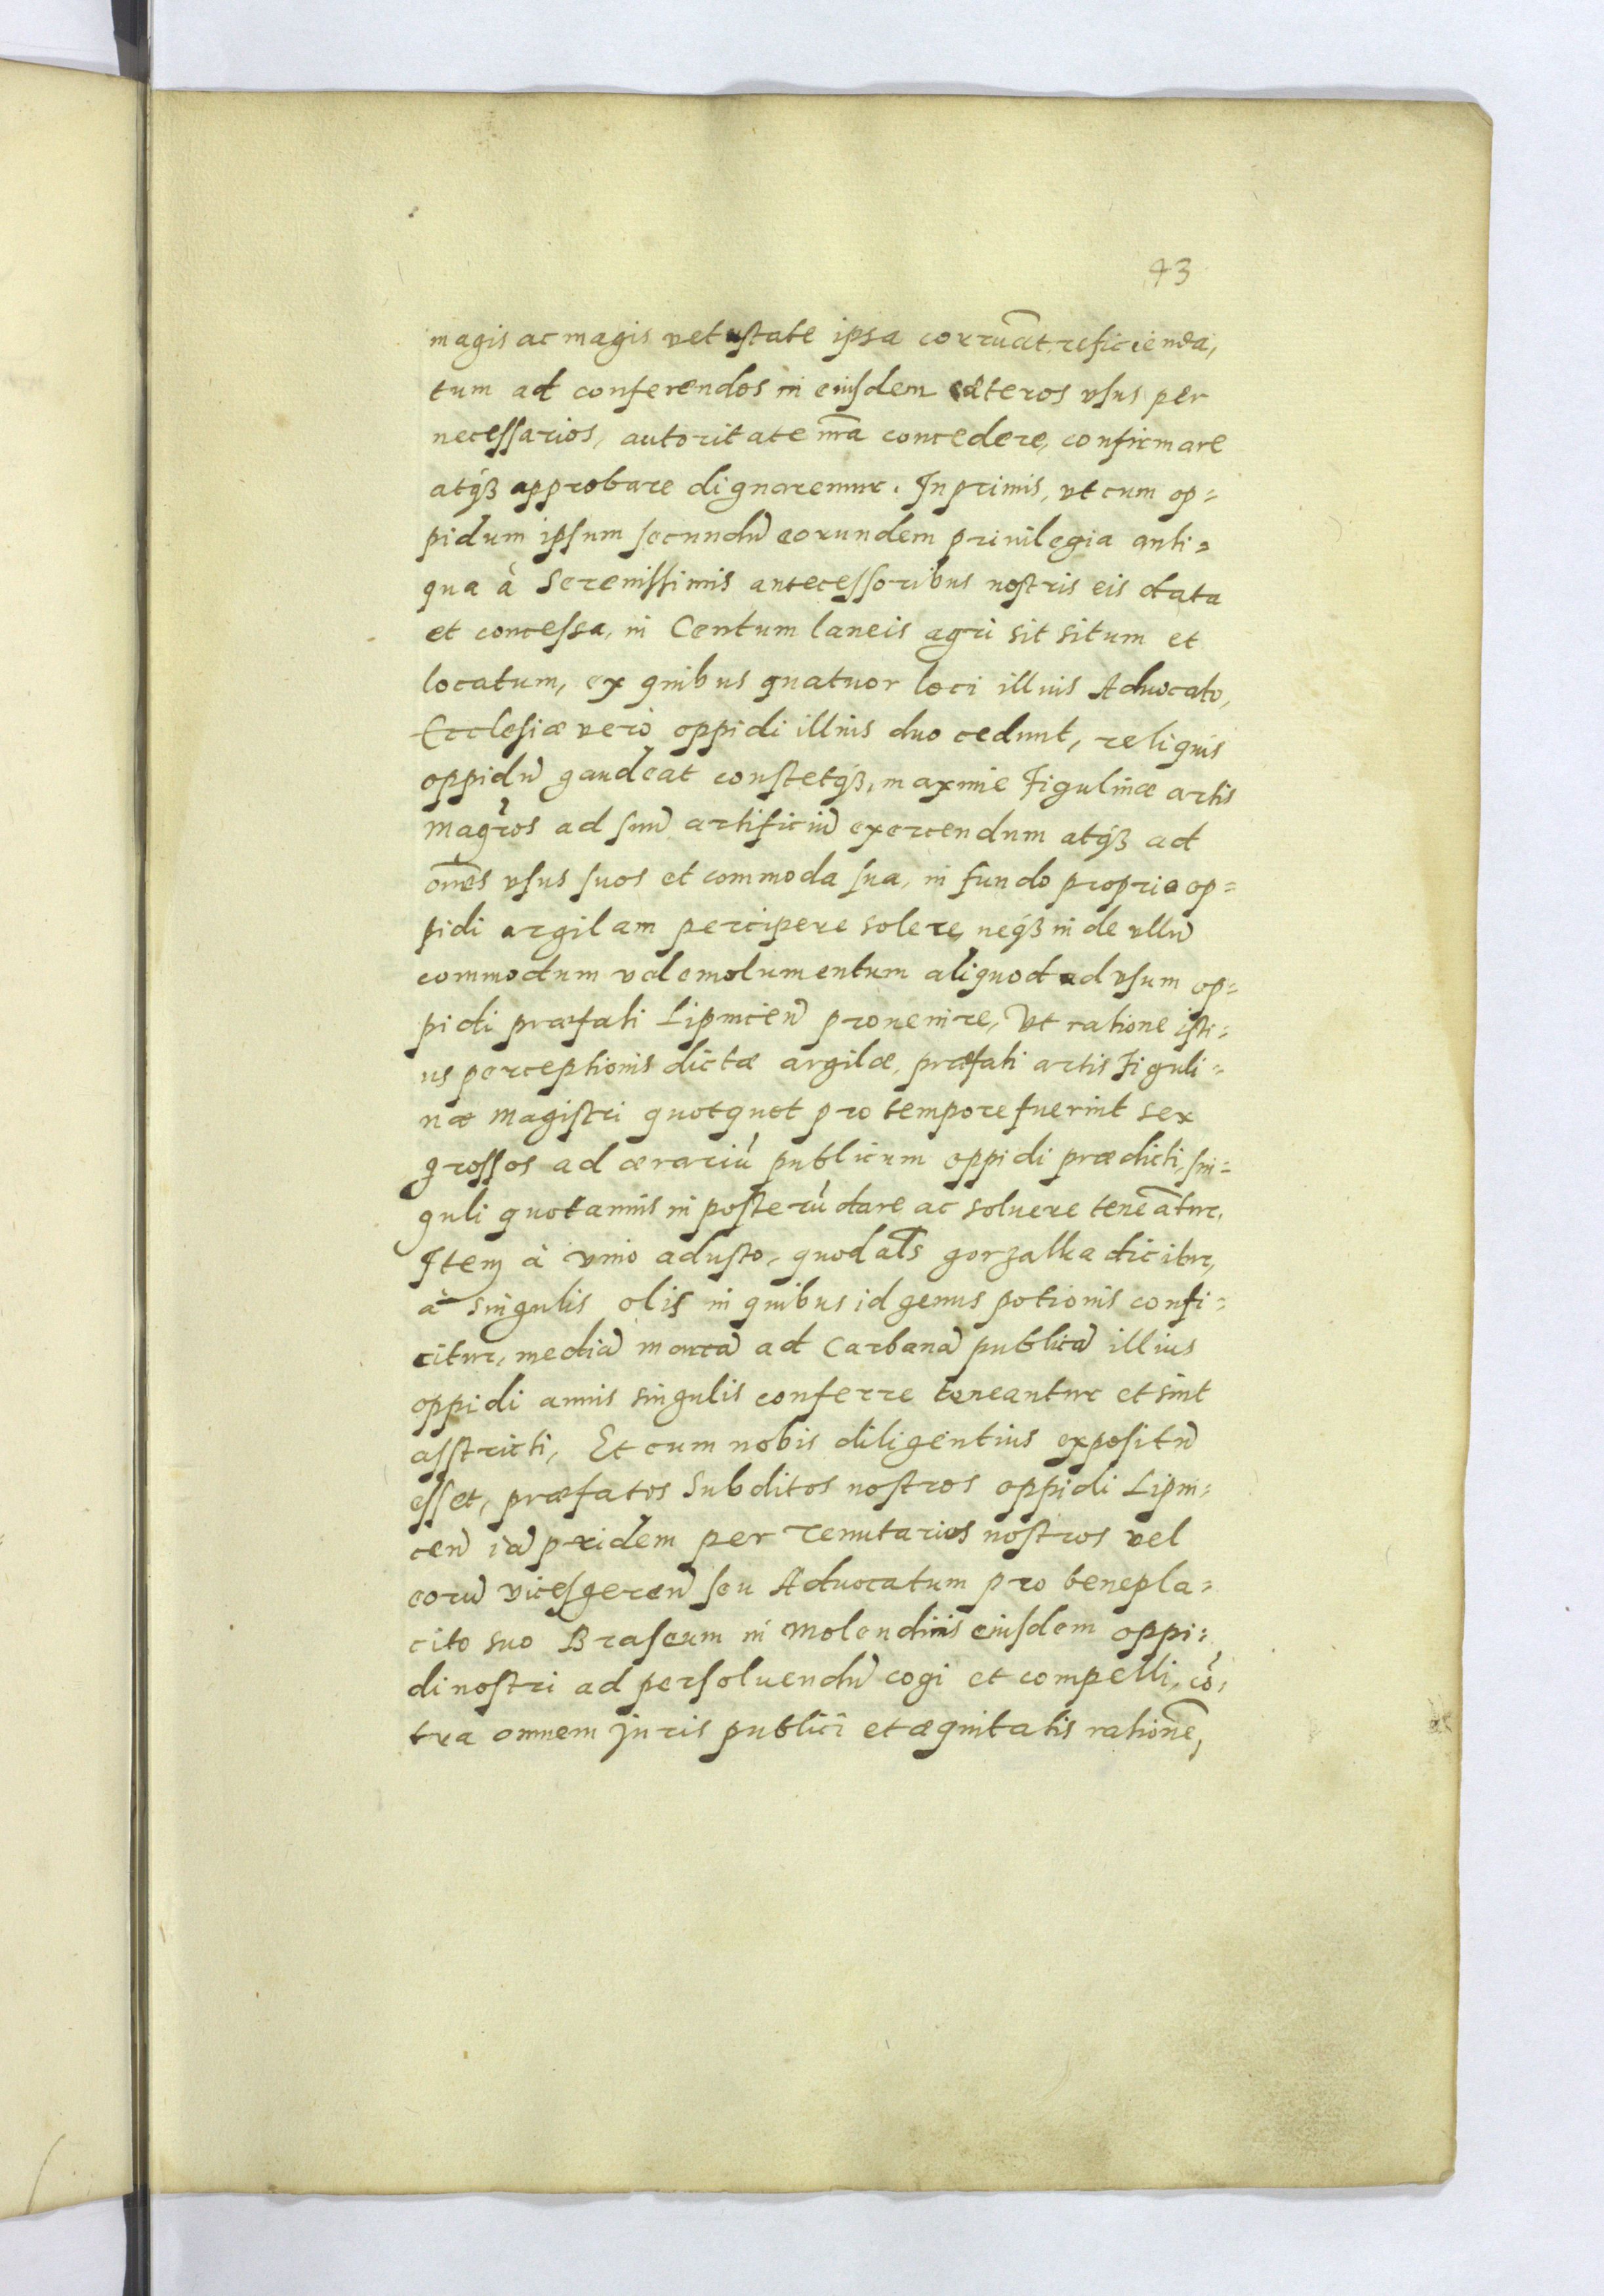 43
magis ac magis vetustate ipsa corruāt, reficienda,
tum ad conferendos in eiusdem cæteros vsus per
necessarios, autoritate nr̃a concedere, confirmare
atqȝ approbare dignaremur. Inprimis, vt cum op=
pidum ipsum secundū eorundem priuilegia anti=
qua à Serenissimis antecessoribus nostris eis data
et concessa, in Centum laneis agri sit situm et
locatum, ex quibus quatuor loci illius Aduocato,
Ecclesiæ verò oppidi illius duo cedunt, reliquis
oppidū gaudeat constetqȝ, maxime Figulinæ artis
Magr̃os ad suū artificiū exercendum atqȝ ad
om̃es vsus suos et commoda sua, in fundo proprio op=
pidi argilam percipere solere, neqȝ inde vllū
commodum vel emolumentum aliquod ad vsum op=
pidi præfati Lipnicen̄ prouenire, Vt ratione isti=
us perceptionis dictæ argilæ, præfati artis Figuli=
næ Magistri quotquot pro tempore fuerint sex
grossos ad ærariū publicum oppidi prædicti, sin=
guli quotannis in posterū dare ac soluere teneātur.
Item à vino adusto, quod al̃s gorzalka dicitur,
à singulis olis in quibus id genus potionis confi=
citur, mediā marcā ad Carbanā publicā illius
oppidi annis singulis conferre teneantur et sint
asstricti, Et cum nobis diligentius expositū
esset, præfatos Subditos nostros oppidi Lipni=
cen̄ iā pridem per Tenutarios nostros vel
eorū vicesgeren̄ seu Aduocatum pro benepla=
cito suo Braseum in Molendinis eiusdem oppi=
di nostri ad persoluendū cogi et compelli, cō=
tra omnem Juris publici et æquitatis rationē,